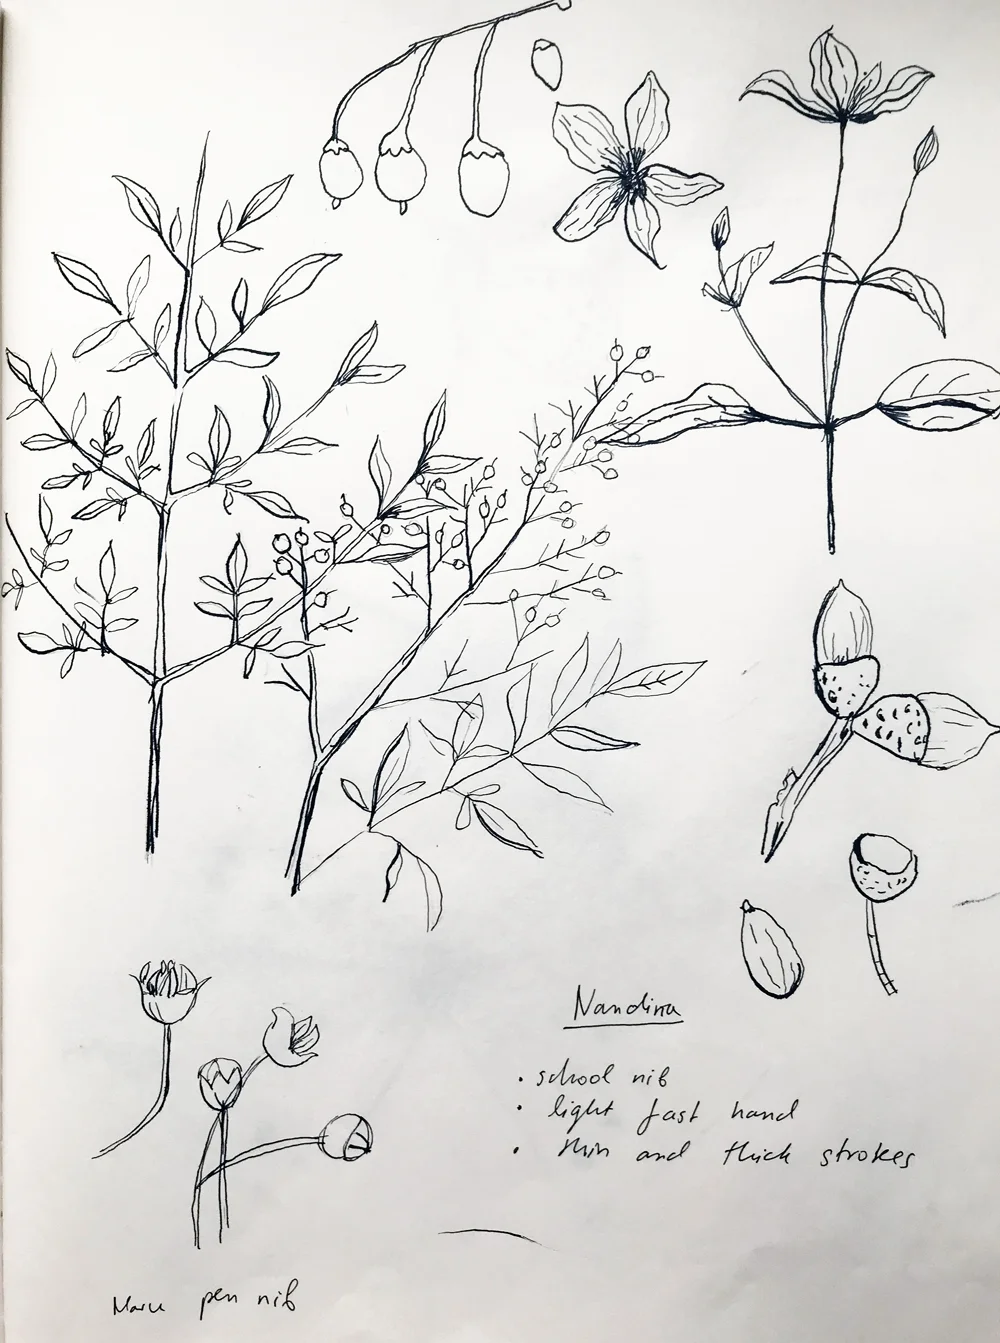 Nandina
• school nib
• light fast hand
• thin and thick strokes
Maru pen nib